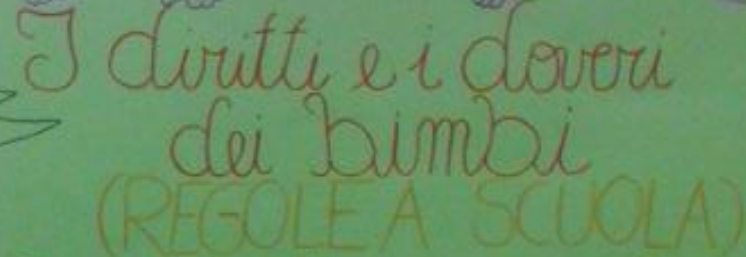 I diritti e i doveri
dei bimbi
(REGOLE A SCUOLA)